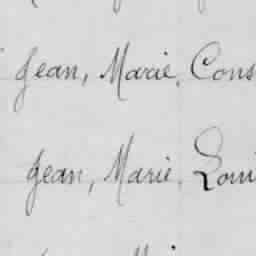 Jean, Marie, Cons
Jean, Marie, Loui